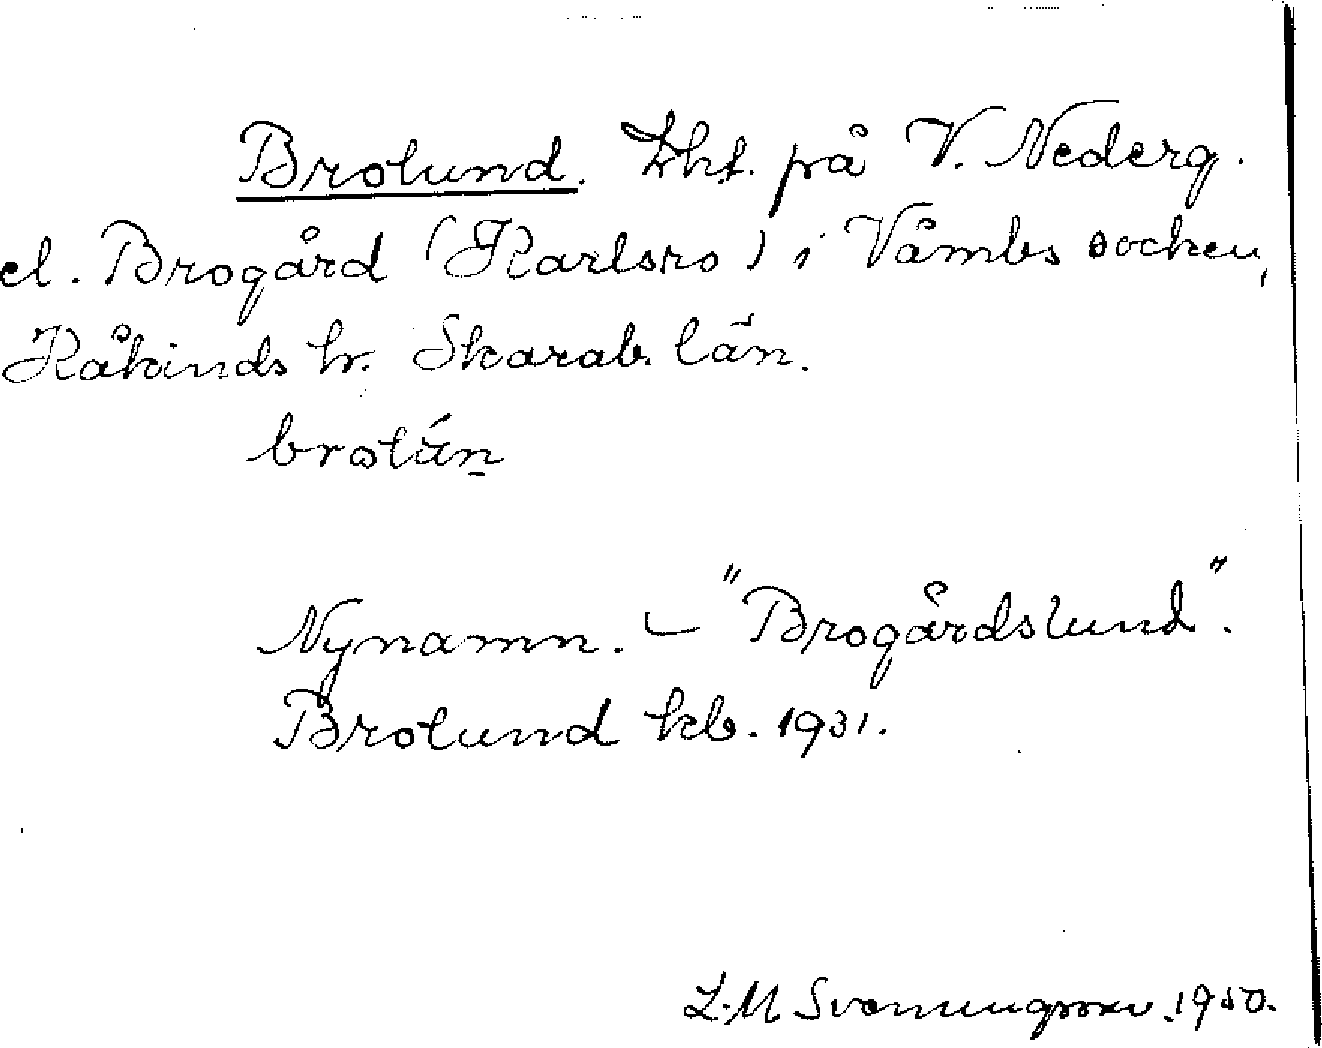 Brolund. Lht. på V. Nederg.
el. Brogård (Karlsro) i Våmbs socken,
Kåkinds hr. Skarab. län.
brolún
Nynamn. – "Brogårdslund".
Brolund kb. 1931.
L. M. Svenningsson. 1950.